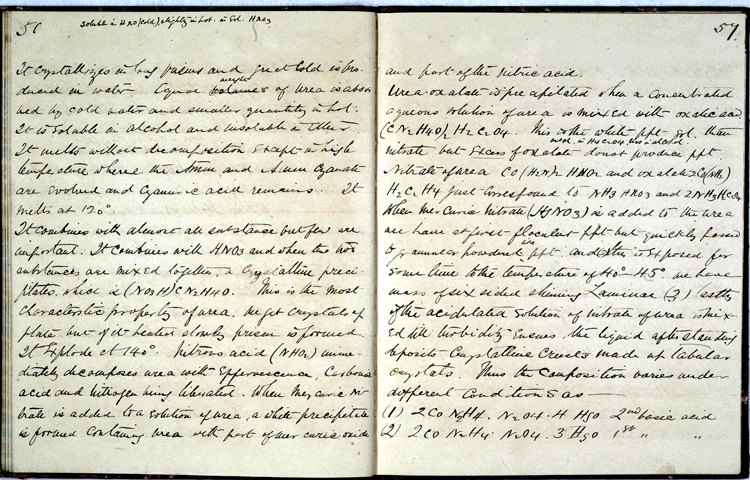 56
Soluble in HNO (Cold), slightly in hot. in Sol. HNO3
It crystallizes in long prisms and great Cold is pro-
duced in water. Equal weights volumes of urea is absor
bed by cold water and smaller quantity in hot.
It is soluble in alcohol and insoluble in Ether.
It melts without decomposition Except in high
temperature where the Amm and Amm Cyanate
are evolved and Cyanuric acid remains. It
melts at 120°.
It combines with almost all substance but few are
important. It combines with HNO3 and when the two
substances are mixed together, a Crystalline preci-
pitates, which is (NO3H) CN2H4O. This is the most
characteristic property of urea. We get crystals of
plate but if it heated slowly prism is formed.
It Explode at 140°. Nitrous acid (NHO2) imme-
diately decomposes urea with Effervescence, Carbonic
acid and Nitrogen being liberated. When Mercuric Ni-
trate is added to a solution of urea, a white precipitate
is formed Containing urea with part of mercuric oxide
57
and part of the nitric acid.
Urea oxalate is precipitated when a Concentrated
aqueous solution of urea is mixed with oxalic acid
(CN2H4O)2 H2C2O4. This is the white ppt Sol. than
insol. in H2C2O4, less in alcohol
nitrate but Excess of oxalate do not produce ppt.
Nitrate of urea CO(H2N)2 HNO3 and oxalate 2CO(NH2)
H2C2H4 just correspond to NH3 HNO3 and 2NH3H2C2O4
When Mercuric Nitrate (HgNO3) is added to the urea
we have at first floculent ppt but quickly passed
to granular powder ppt. and this is Exposed for
some time to the temperature of 40°-45° we have
mass of six sided shining Laminae (3) lastly
if the acidulated solution of nitrate of urea is mix-
Ed till turbidity Ensues, the liquid after standing
deposits Crystalline Crusts made up tabular
crystals. Thus the Composition varies under
different Conditions as —
(1) 2CO N2H4. N2O4. 4 HgO 2nd basic acid
(2) 2CO N2H4. N2O4. 3 HgO 1st " "